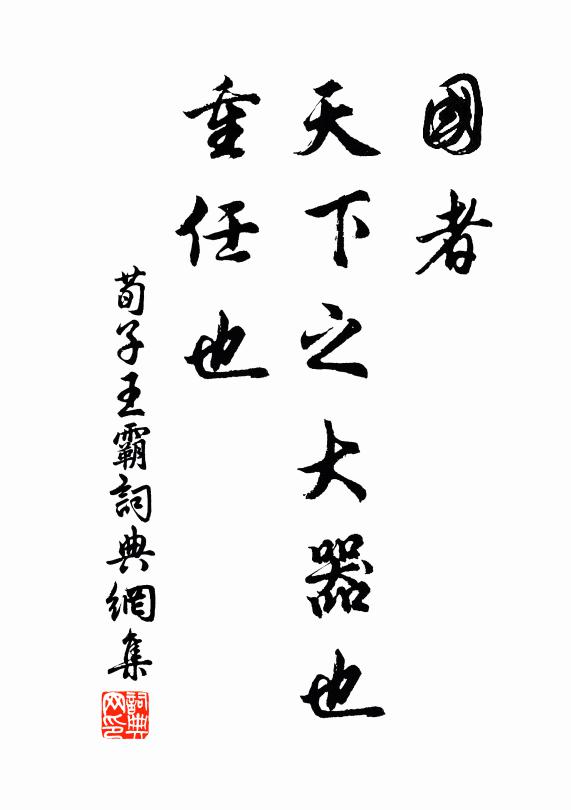 國者
天下之大器也
重任也
荀子王霸詞典網集
詞典網印